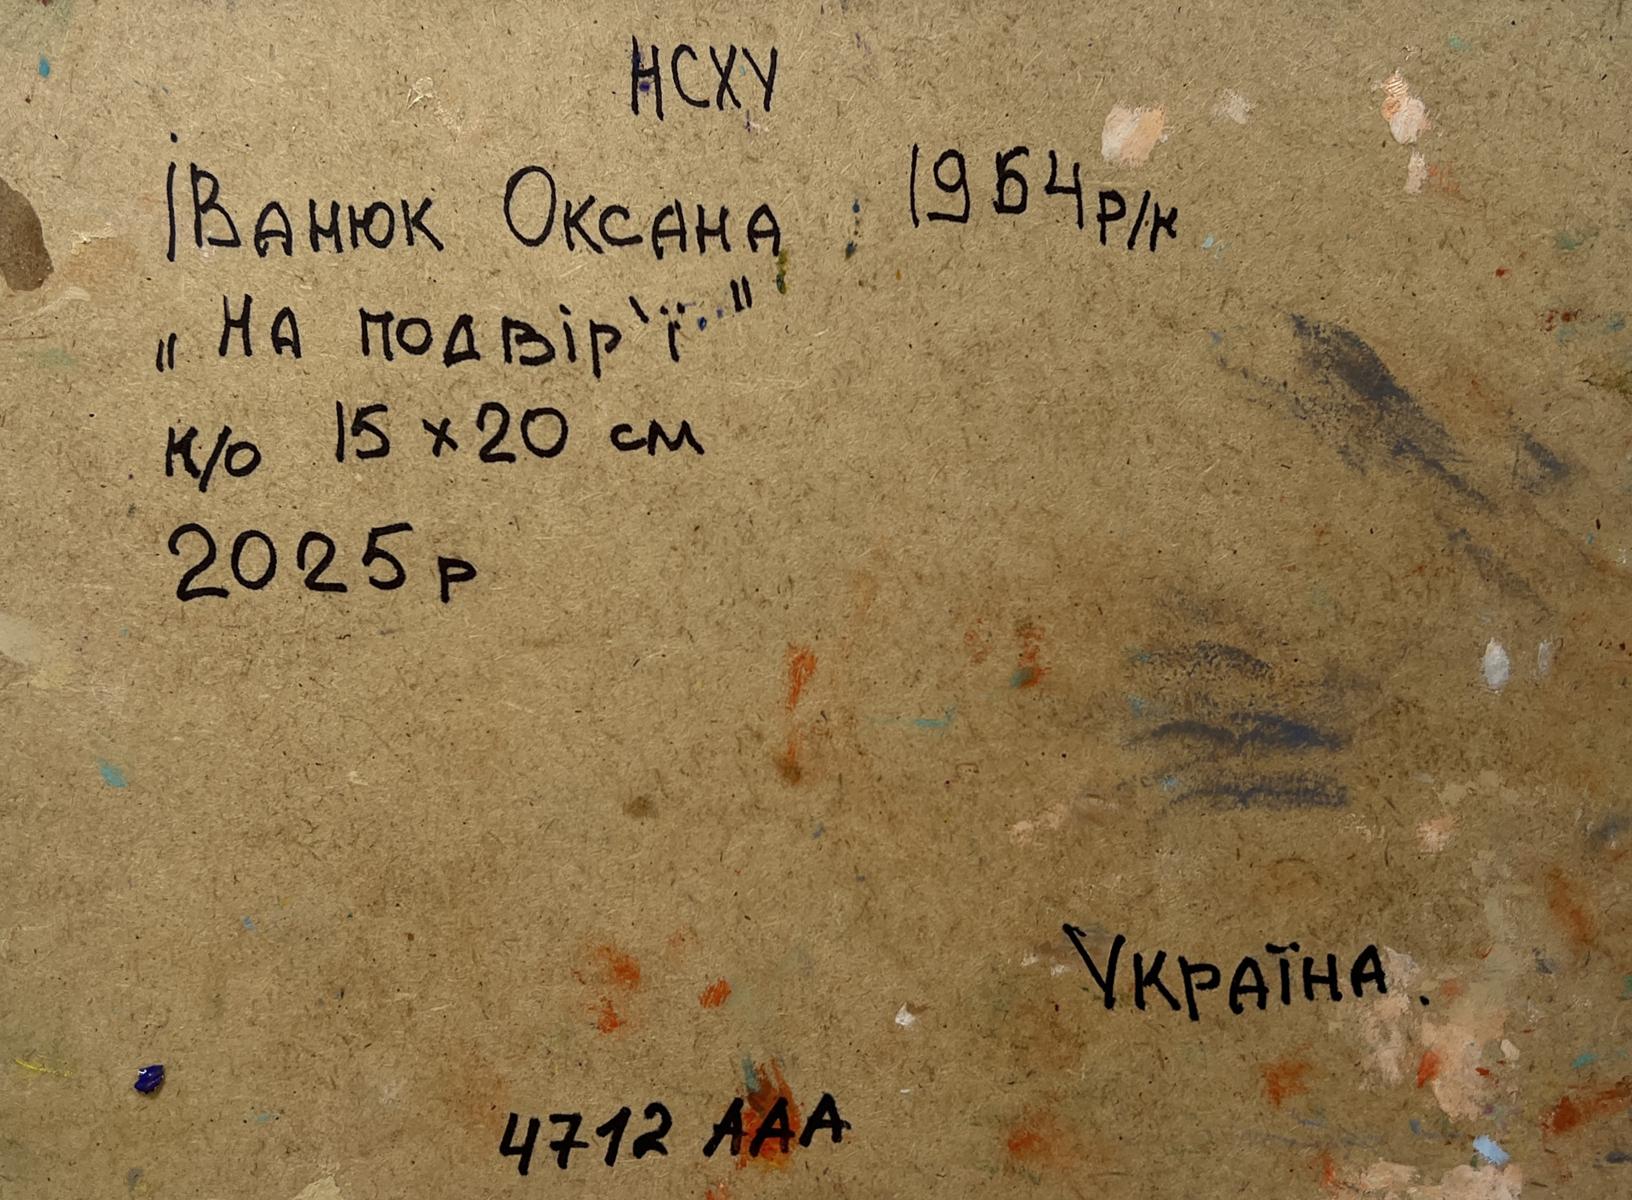 НСХУ
Іванюк Оксана 1954 р/н
„На подвір'ї"
к/о 15 х 20 см
2025 р
Україна.
4712 ААА